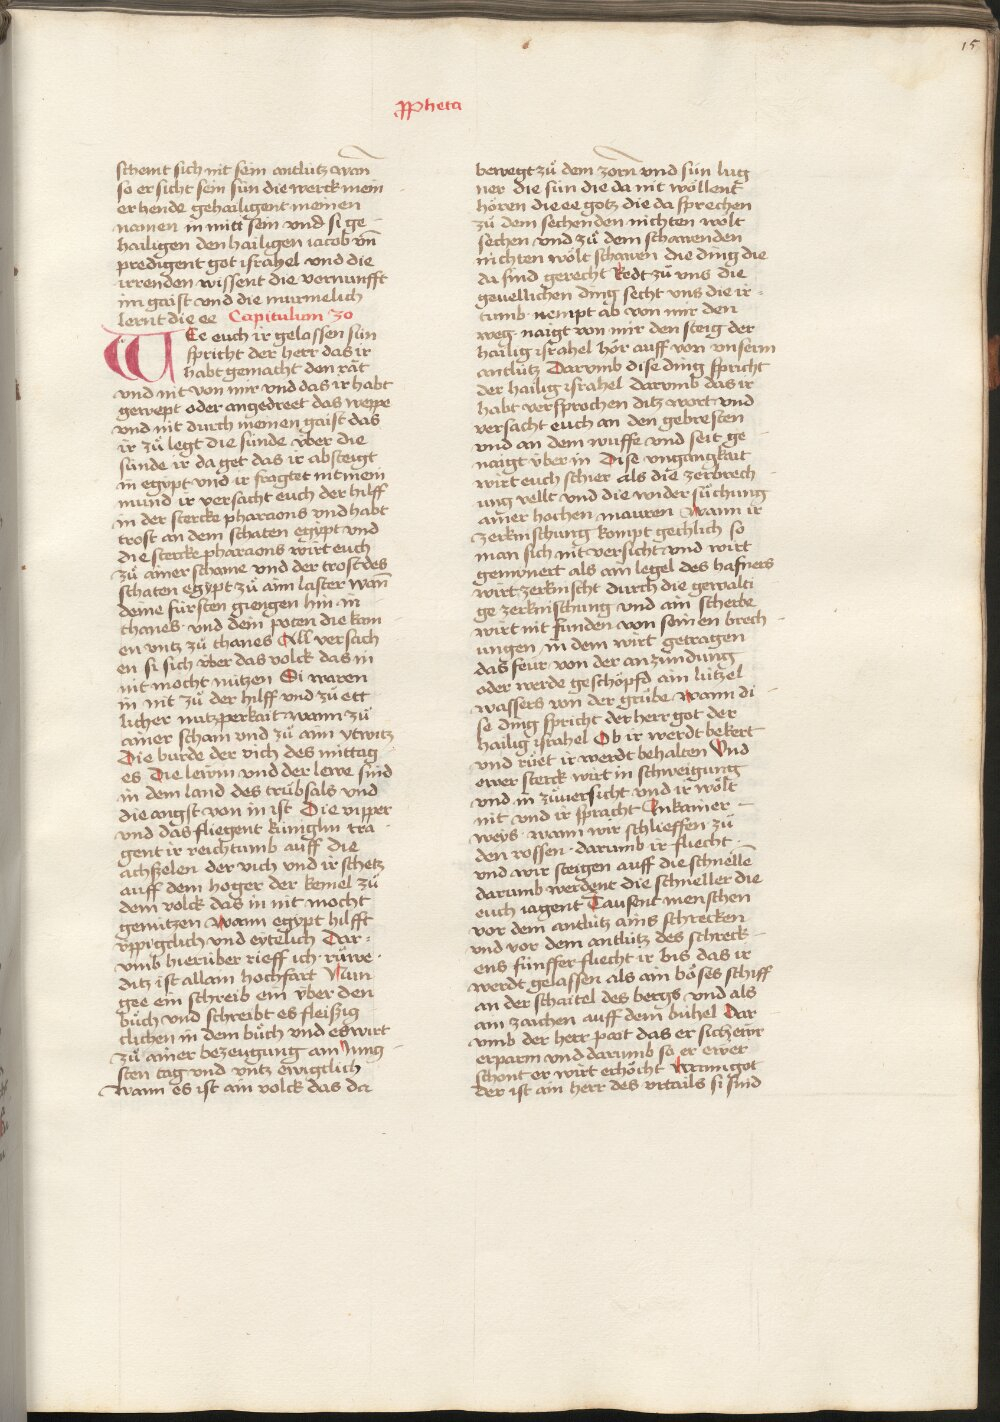 15
ꝓpheta
schemt sich nit sein antlutz wan̄
so er sicht sein sün die werck mein
er hende gehailigent meinen
namen in mitt sein vnd si ge
hailigen den hailigen iacob vn̄
predigent got israhel vnd die
irrenden wissent die vernunfft
im gaist vnd die murmelich
lernt die ee Capitulum 30
WEe euch ir gelassen sün
spricht der herr das ir
habt gemacht den rät
vnd nit von mir vnd das ir habt
gewept oder angedreet das weppe
vnd nit durch meinen gaist das
ir zů legt die sünde vber die
sünde ir da get das ir absteigt
in egipt vnd ir fragtet nit mein
mund ir versacht euch der hilff
in der stercke pharaons vnd habt
trost an dem schaten egipt vnd
die stercke pharaons wirt euch
zů ainer schame vnd der trost des
schaten egypt zů aim laster wan̄
deine fürsten giengen hin in
thanes vnd dem poten die kom
en vntz zů thanes All versach
en si sich vber das volck das in
nit mocht nützen Si waren
in nit zů der hilff vnd zů ett
licher nutzperkait wann zů
ainer scham vnd zů aim ytwitz
Die burde der vich des mittag
es Die lewin vnd der lewe sind
in dem land des trübsals vnd
die angst von in ist Die vipper
vnd das fliegent küniglin tra
gent ir reichtumb auff die
achselen der vich vnd ir schetz
auff dem hoger der kemel zů
dem volck das in nit mocht
genützen wann egypt hilfft
vppigclich vnd eytelich Dar
vmb hierüber rieff ich rüwe
ditz ist allain hochfart Nun
gee ein schreib ein vber den
bůch vnd schreibt es fleißig
clichen in dem bůch vnd es wirt
zů ainer bezeugung am iung
sten tag vnd vntz ewigclich
wann es ist ain volck das da
bewegt zů dem zorn vnd sün lug
ner die sün die da nit wöllent
hören die ee gotz die da sprechen
zů dem sechenden nichten wölt
sechen vnd zů dem schawenden
nichten wölt schawen die ding die
da sind gerecht Redt zů vns die
geuellichen ding secht vns die ir
tumb nempt ab von mir den
weg naigt von mir den steig der
hailig israhel hör auff von vnserm
antlütz Darumb dise ding spricht
der hailig israhel darumb das ir
habt versprochen ditz wort vnd
versacht euch an den gebresten
vnd an dem wuffe vnd seit ge
naigt vber in Dise vngangkait
wirt euch schier als die zerbrech
ung vellt vnd die wider sůchung
ainer hochen mauren wann ir
zerknischung kompt gechlich so
man sich nit versicht vnd wirt
gemynert als ain legel des hafners
wirt zerknischt durch die gewalti
ge zerknischung vnd ain scherbe
wirt nit funden von seinen brech
ungen in dem wirt getragen
das feur von der anzündung
oder werde geschöpfd ain lützel
wassers von der grübe wann di
se ding spricht der herr got der
hailig israhel Ob ir werdt bekert
vnd rüet ir werdt behalten Vnd
ewer sterck wirt in schweigung
vnd in zůuersicht vnd ir wölt
nit vnd ir spracht Inkainer
weys wann wir schlieffen zů
den rossen darumb ir fliecht
vnd wir steigen auff die schnellē
darumb werdent die schneller die
euch iagent Tausent menschen
vor dem antlütz ains schrecken
vnd vor dem antlütz des schreck
ens fünffer fliecht ir bis das ir
werdt gelassen als ain böses schiff
an der schaitel des bergs vnd als
ain zaichen auff dem bühel Dar
vmb der herr pait das er sich ewr
erparm vnd darumb so er ewer
schont er wirt erhöcht wann got
der ist ain herr des vrtails si sind